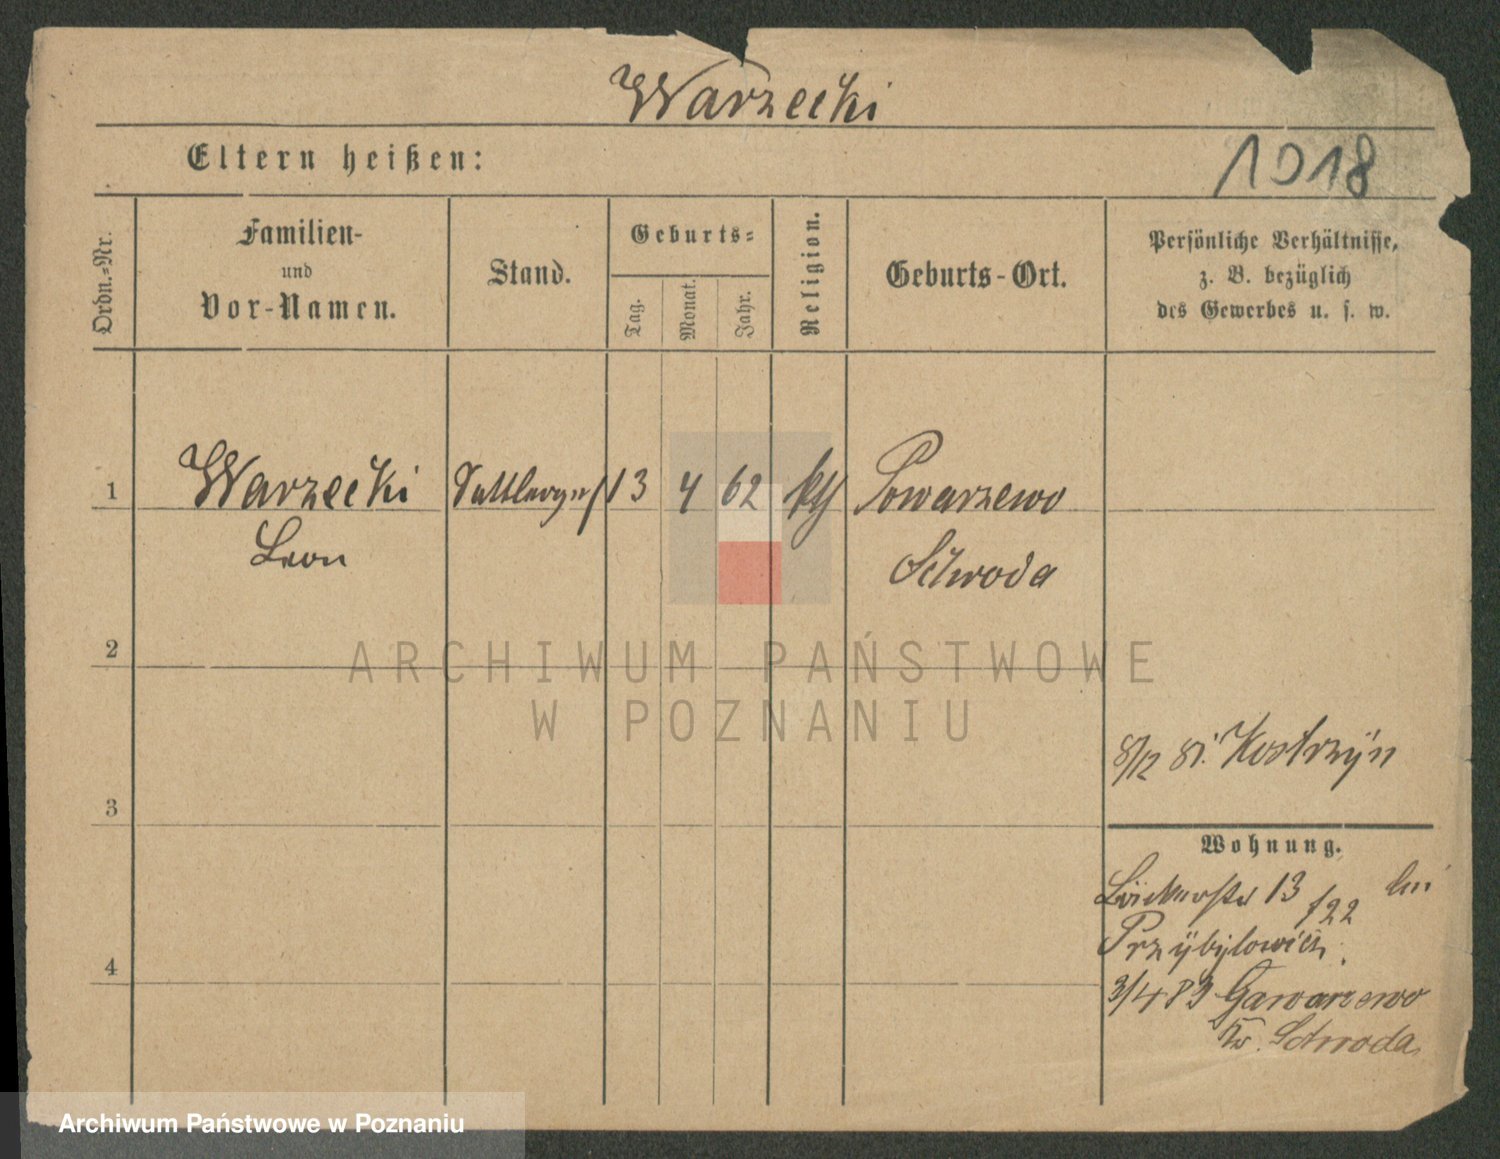 Warzecki
Eltern heißen:
1018
Ordn.-Nr.
Familien-
und
Vor-Namen.
Stand.
Geburts-
Tag.
Monat.
Jahr.
Religion.
Geburts-Ort.
Persönliche Verhältnisse,
z. B. bezüglich
des Gewerbes u. s. w.
1
Warzecki
Leon
Sattlerges
13
4
62
kth
Powarzewo
Schroda
2
ARCHIWUM PAŃSTWOWE
W POZNANIU
8/12 81. Kostrzyn
3
Wohnung.
13 /22 bei
Przybylowicz.
4
3/4 83 Gawarzewo
Kr. Schroda
Archiwum Państwowe w Poznaniu